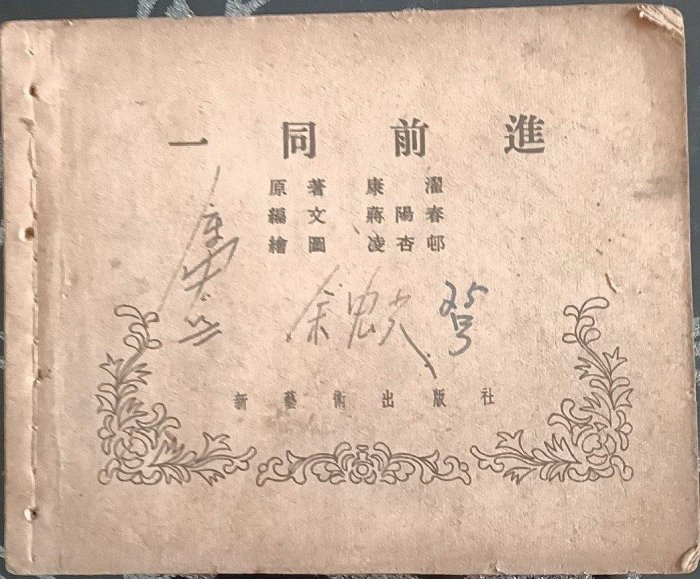 一同前進
原著 康濯
編文 蔣陽春
繪圖 凌杏邨
余忠夫 25号
新藝術出版社